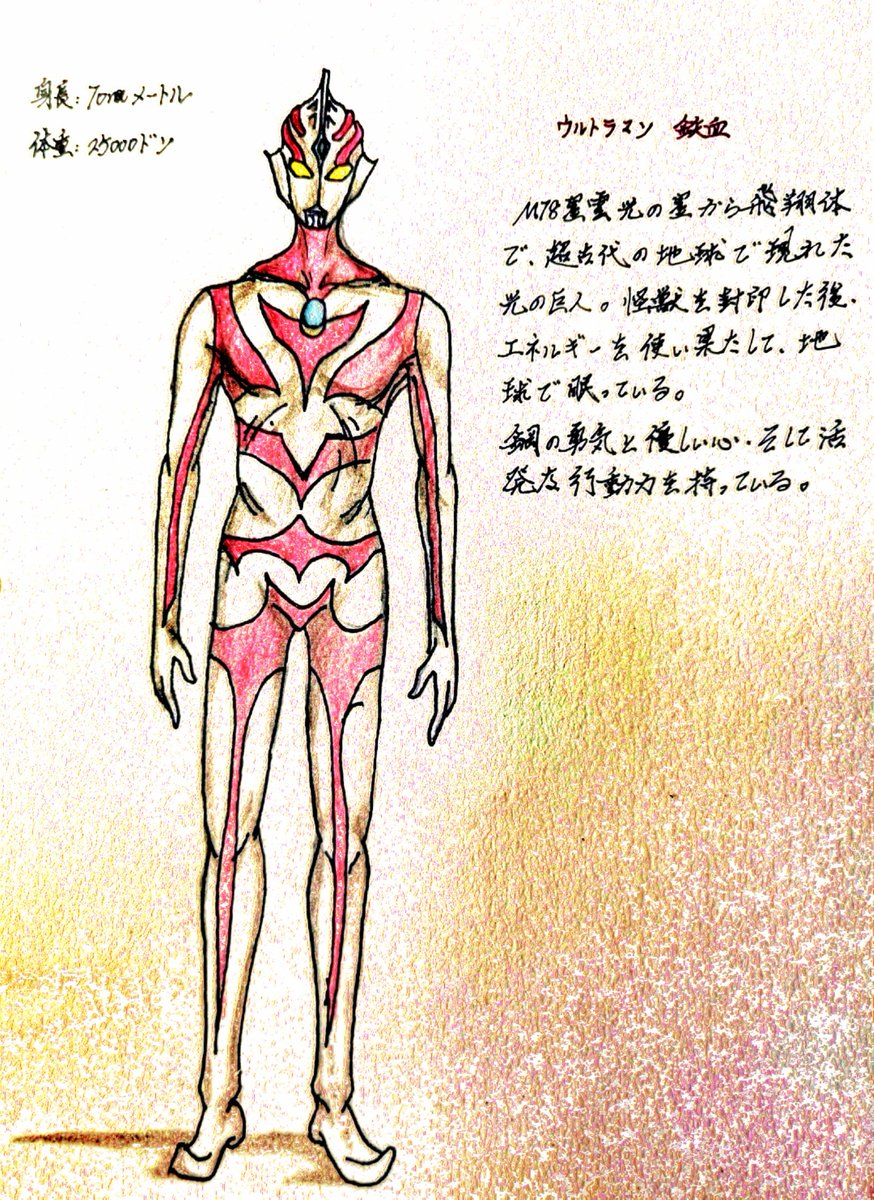 身長：70mメートル
体重：25000ドン
ウルトラマン 鉄血
M78星雲光の星から飛翔体
で、超古代の地球で現れた
光の巨人。怪獣を封印した後、
エネルギーを使い果たして、地
球で眠っている。
鋼の勇気と優しい心、そして活
発な行動力を持っている。